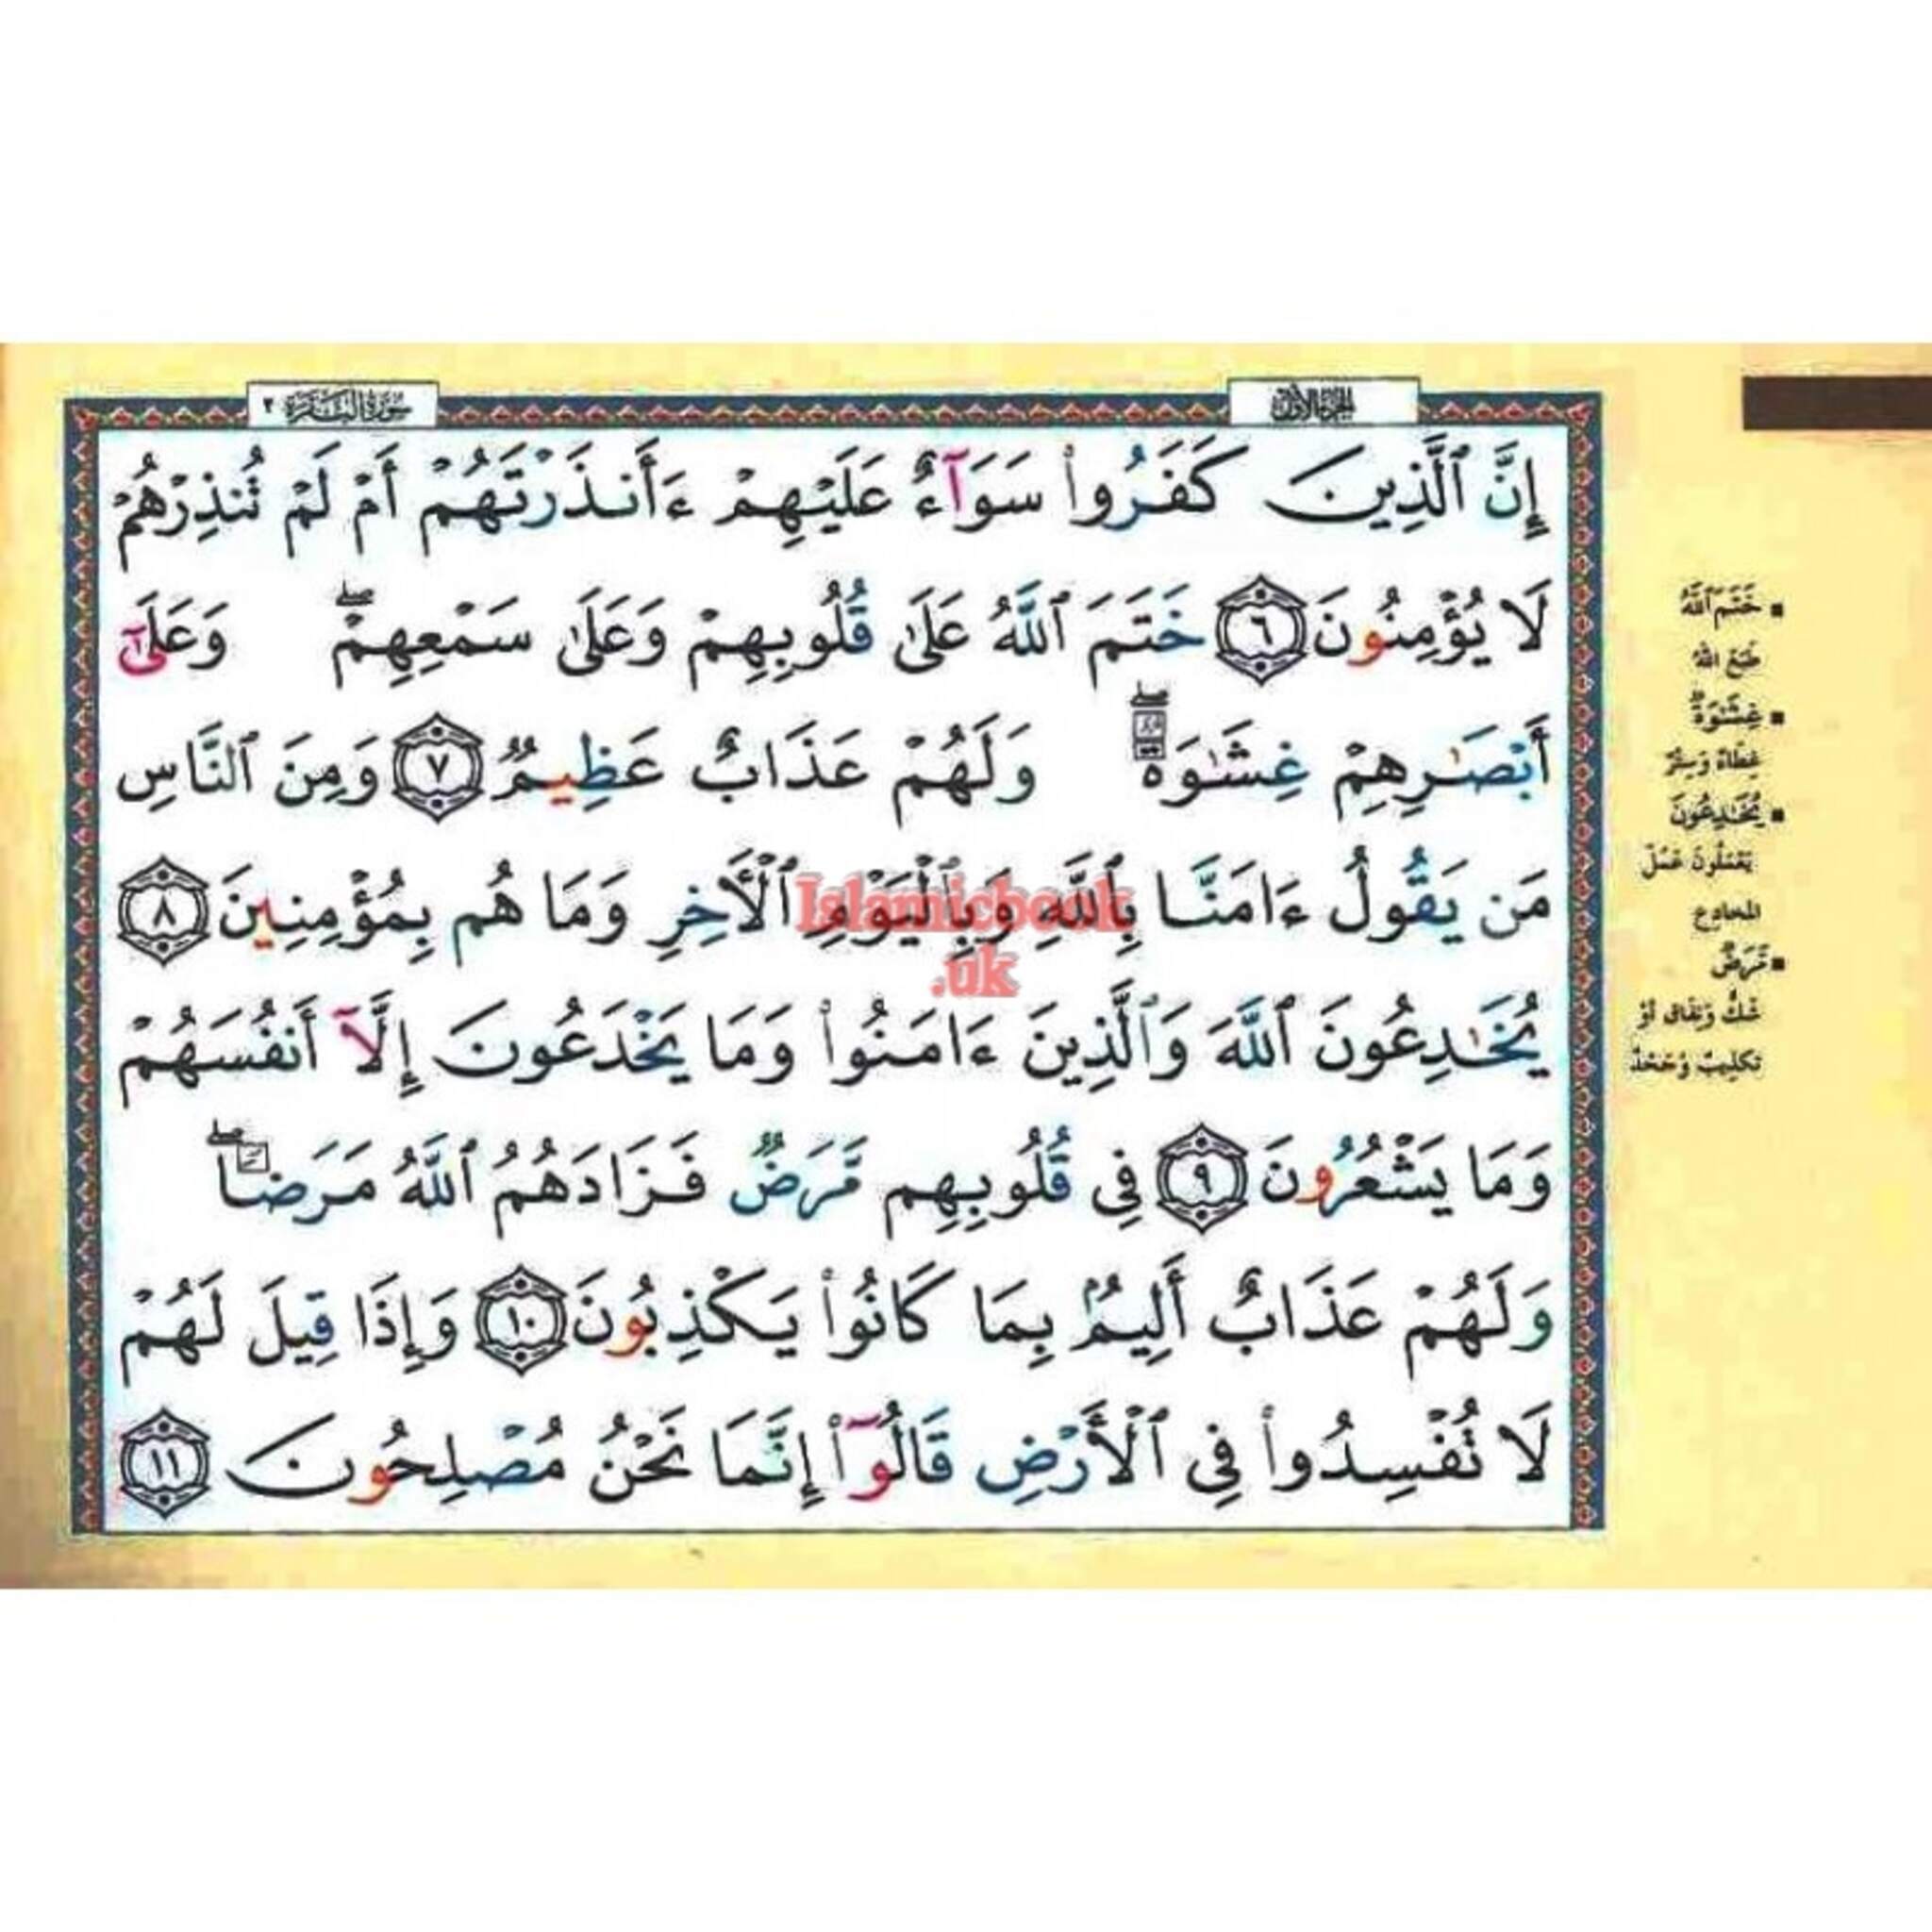 سورة البقرة ٢
الجزء الأول
إِنَّ ٱلَّذِينَ كَفَرُوا۟ سَوَآءٌ عَلَيْهِمْ ءَأَنذَرْتَهُمْ أَمْ لَمْ تُنذِرْهُمْ
لَا يُؤْمِنُونَ ٦ خَتَمَ ٱللَّهُ عَلَىٰ قُلُوبِهِمْ وَعَلَىٰ سَمْعِهِمْ ۖ وَعَلَىٰٓ
أَبْصَٰرِهِمْ غِشَٰوَةٌ ۖ وَلَهُمْ عَذَابٌ عَظِيمٌ ٧ وَمِنَ ٱلنَّاسِ
مَن يَقُولُ ءَامَنَّا بِٱللَّهِ وَبِٱلْيَوْمِ ٱلْأَخِرِ وَمَا هُم بِمُؤْمِنِينَ ٨
Islamicbook
.uk
يُخَٰدِعُونَ ٱللَّهَ وَٱلَّذِينَ ءَامَنُوا۟ وَمَا يَخْدَعُونَ إِلَّآ أَنفُسَهُمْ
وَمَا يَشْعُرُونَ ٩ فِى قُلُوبِهِم مَّرَضٌ فَزَادَهُمُ ٱللَّهُ مَرَضًا ۖ
وَلَهُمْ عَذَابٌ أَلِيمٌۢ بِمَا كَانُوا۟ يَكْذِبُونَ ١٠ وَإِذَا قِيلَ لَهُمْ
لَا تُفْسِدُوا۟ فِى ٱلْأَرْضِ قَالُوٓا۟ إِنَّمَا نَحْنُ مُصْلِحُونَ ١١
▪ خَتَمَ ٱللَّهُ
طَبَعَ اللهُ
▪ غِشَٰوَةٌ
غِطَاءٌ وَسِتْرٌ
▪ يُخَٰدِعُونَ
يَعْمَلُونَ عَمَلَ
المخادِعِ
▪ مَّرَضٌ
شَكٌّ وَنِفَاقٌ أَوْ
تَكْذِيبٌ وَجَحْدٌ